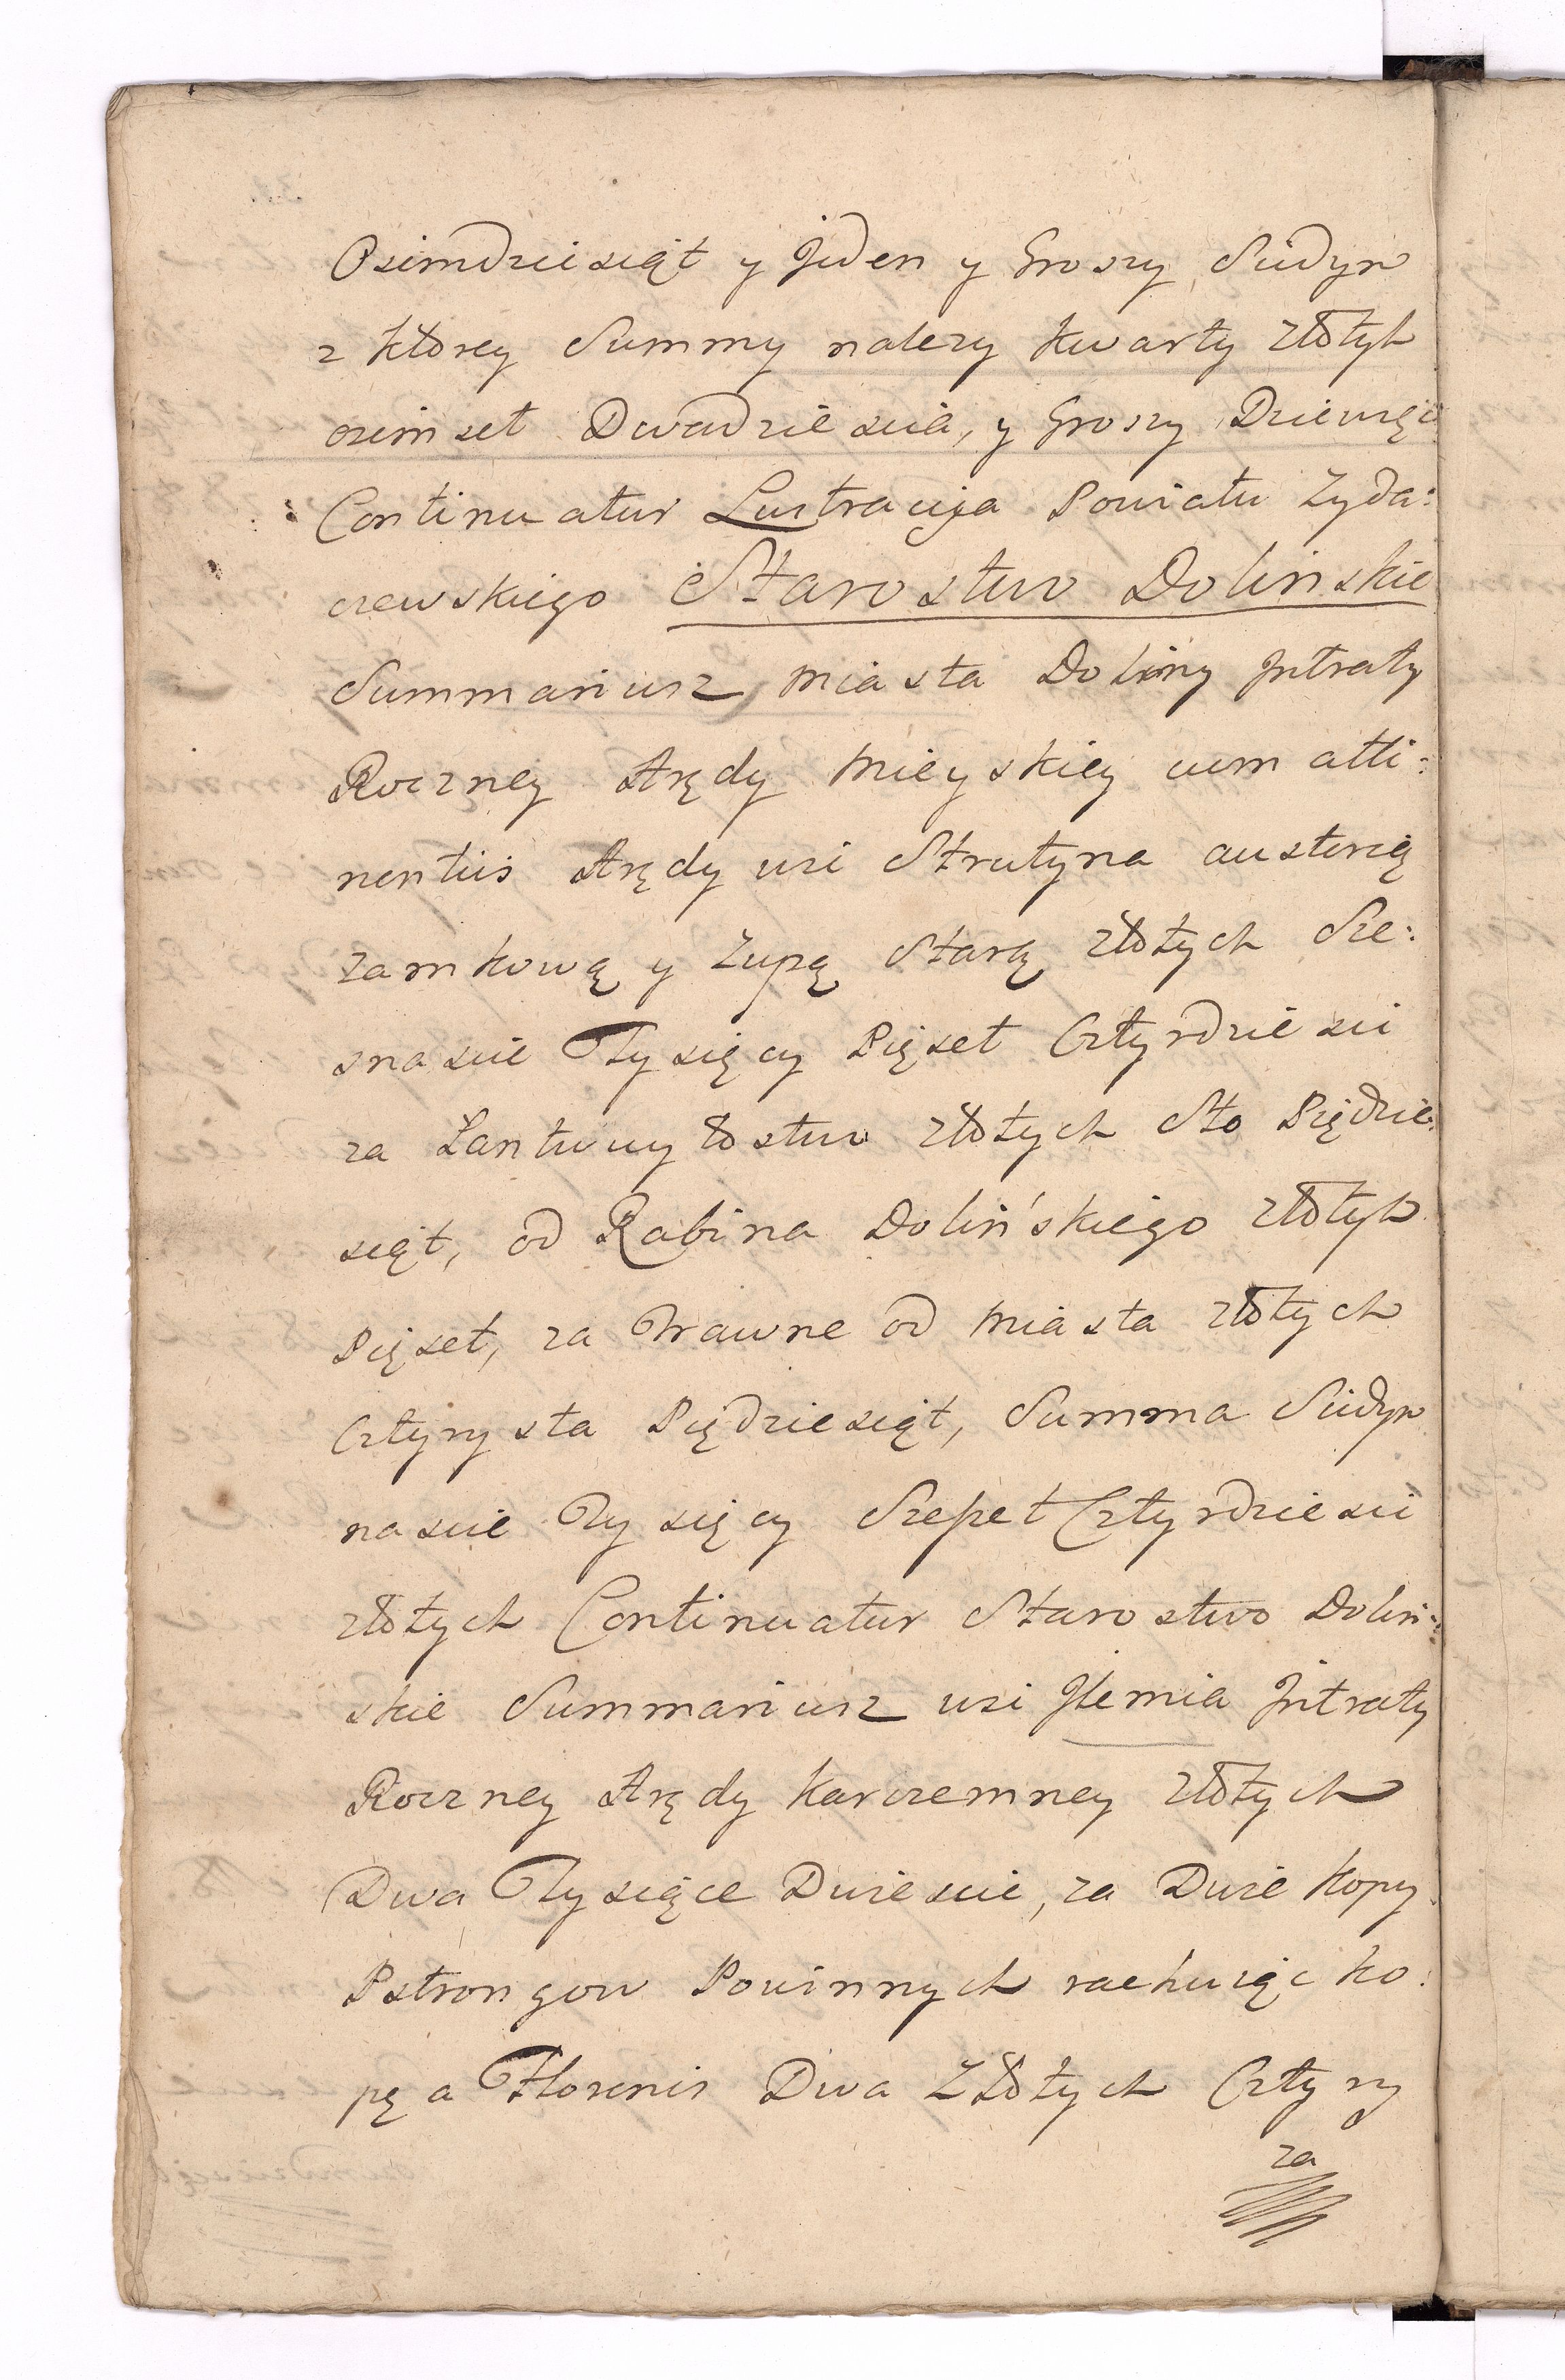 Osimdziesiąt y Jeden y Groszy Siedym
z ktorey Summy nalezy kwarty złotych
osimset Dwadziescia, y Groszy Dziewięć
Continuatur Lustracyja Powiatu Zyda:
czewskiego Starostwo Dolinskie
Summariusz miasta Doliny Jntraty
Roczney Arędy mieyskiey cum atti:
nentiis Arędy wsi Strutyna austeryą
zamkową y Zupą Starą złotych Sze:
snascie Tysięcy Pięset Cztyrdziesci
za Lantwuytostwo złotych Sto Piędzie:
siąt, od Rabina Dolińskiego złotych
Pięset, za Trawne od miasta złotych
Cztyrysta Piędziesiąt, Summa Siedym
nascie Tysięcy Szesset Cztyrdziesci
złotych Continuatur Starostwo Dolin:
skie Summariusz wsi Jlemia Jntraty
Roczney Arędy karczemney złotych
Dwa Tysiące Dwiescie, za Dwie kopy
Pstrongow Powinnych rachuiąc ko:
pę a Florenis Dwa Złotych Cztyry
za